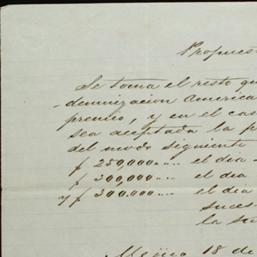 Propues
Se toma el resto qu
demnizacion America
premio, y en el cas
sea aceptada la p
del modo siguiente
$ 250,000 .. .. el dia
$ 300,000 .. .. el dia
y $ 300.000 .. .. el dia
suces
la su
Mejico 18 de